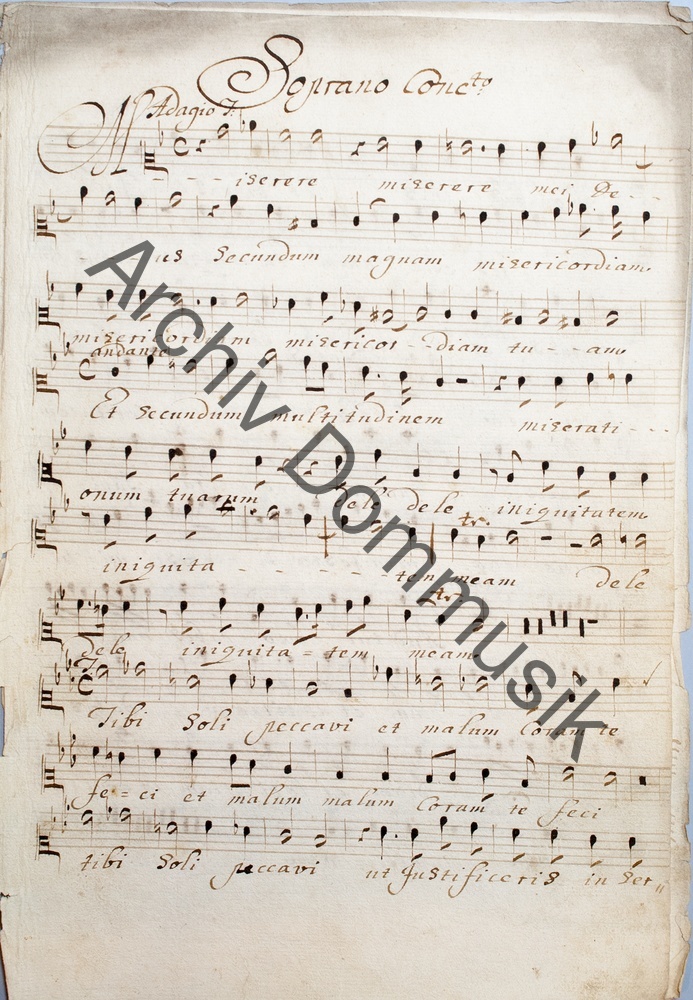 Soprano Conc.to
Adagio
Miserere miserere mei De - -
us Secundum magnam misericordiam
misericordiam misericor - - diam tu - - am
andante
Et secundum multitudinem miserati - - -
onum tuarum dele dele iniquitatem
tr.
iniquita - - - - - - - tem meam dele
tr.
dele iniquita = tem meam
Tibi Soli peccavi et malum Coram te
fe = ci et malum malum Coram te feci
tibi Soli peccavi ut Justificeris in Ser„
Archiv Dommusik